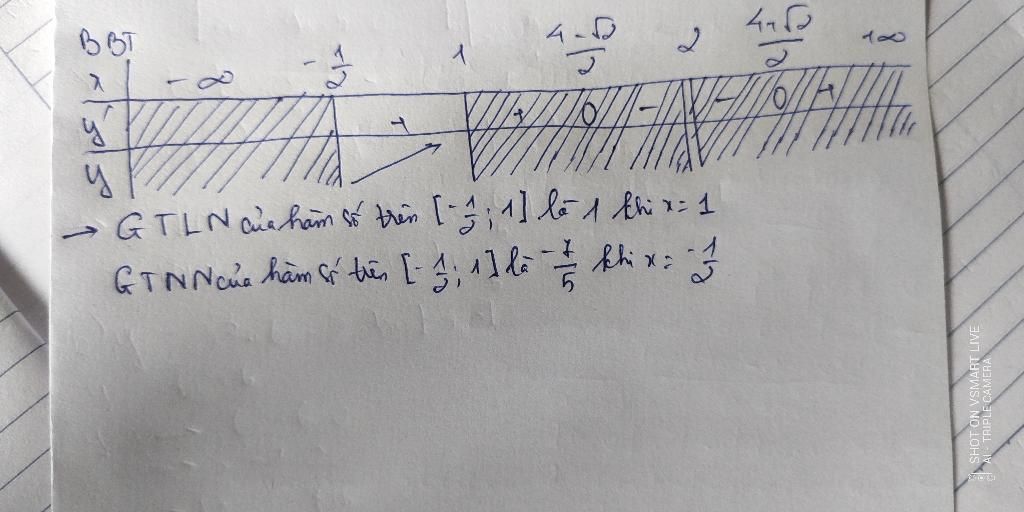 BBT
x -∞ -1/2 1 (4-√2)/2 2 (4+√2)/2 +∞
y' + + 0 - - 0 +
y
→ GTLN của hàm số trên [-1/2; 1] là 1 khi x = 1
GTNN của hàm số trên [-1/2; 1] là -7/5 khi x = -1/2
SHOT ON VSMART LIVE
AI - TRIPLE CAMERA